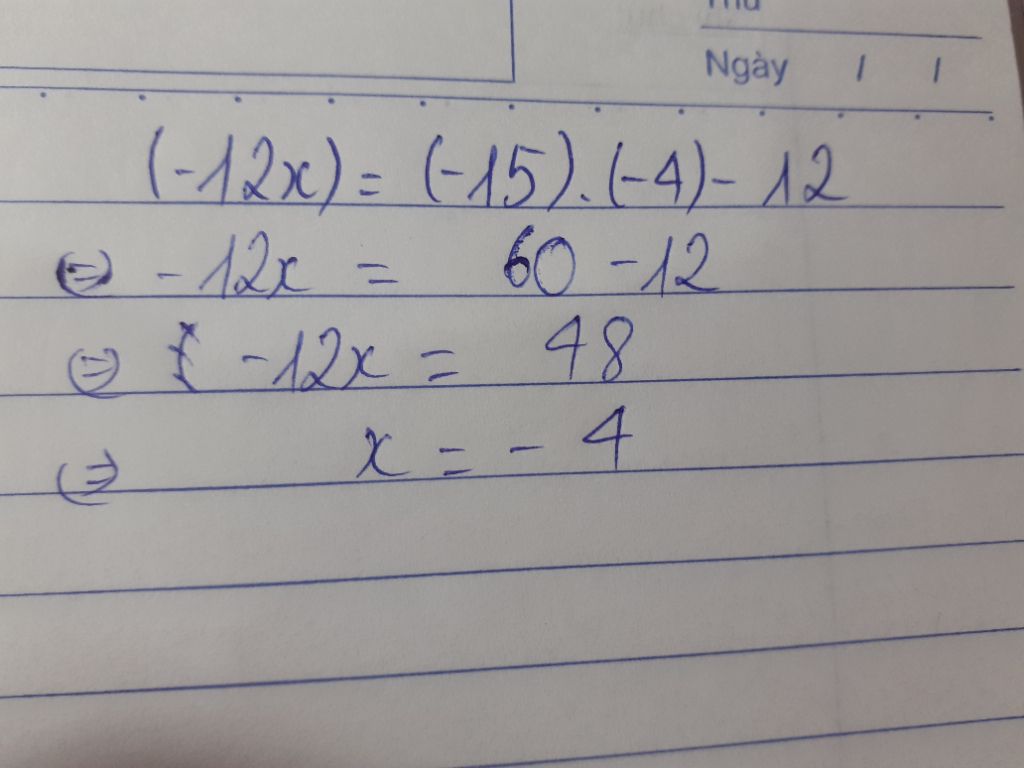 Thứ
Ngày / /
(-12x) = (-15).(-4) - 12
⇔ -12x = 60 - 12
⇔ -12x = 48
⇔ x = - 4